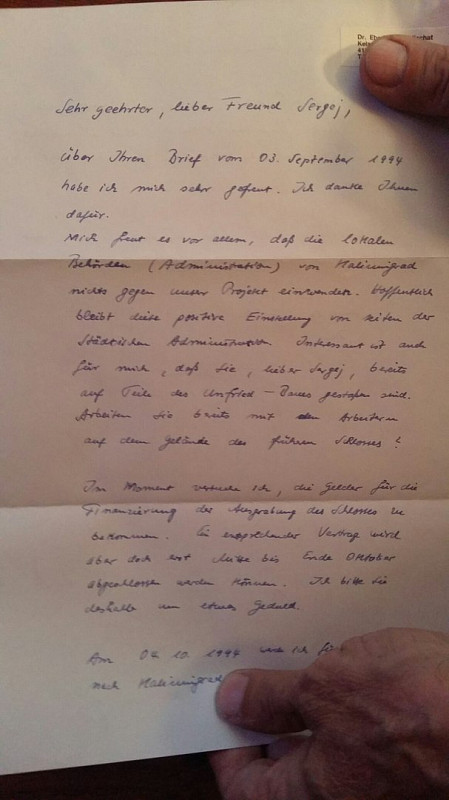 Dr. E
Sehr geehrter, lieber Freund Sergej,
über Ihren Brief vom 03. September 1994
habe ich mich sehr gefreut. Ich danke Ihnen
dafür.
Mich freut es vor allem, daß die lokalen
Behörden (Administration) von Kaliningrad
nichts gegen unser Projekt einwenden. Hoffentlich
bleibt diese positive Einstellung von seiten der
städtischen Administration. Interessant ist auch
für mich, daß Sie, lieber Sergej, bereits
auf Teile des Unfried-Baues gestoßen sind.
Arbeiten Sie bereits mit den Arbeitern
auf dem Gelände des früheren Schlosses?
Im Moment versuche ich, die Gelder für die
Finanzierung der Ausgrabung des Schlosses zu
bekommen. Ein entsprechender Vertrag wird
aber doch erst Mitte bis Ende Oktober
abgeschlossen werden können. Ich bitte Sie
deshalb um etwas Geduld.
Am 10. 1994 ich
nach Kaliningrad